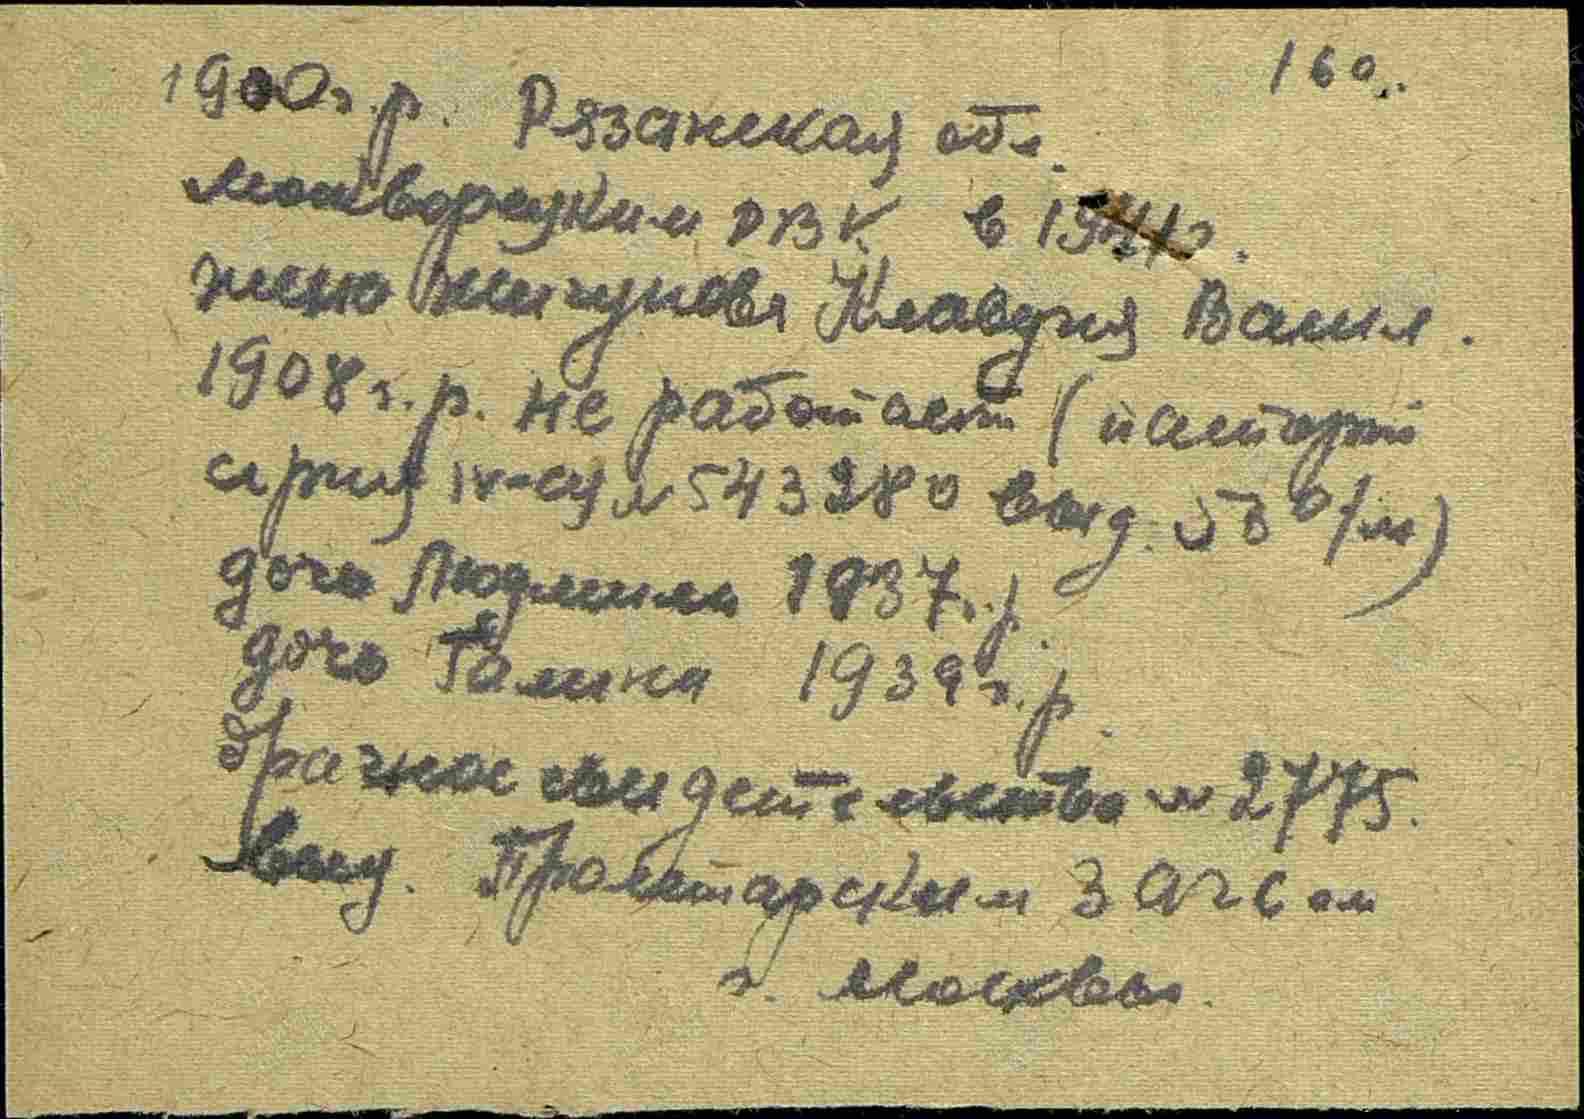 160.
1900 г.р. Рязанская обл.
москворецким РВК в 1941 г.
жена Жигунова Клавдия Васил.
1908 г.р. не работает (паспорт
серия IV-СУ № 543280 выд. 53 о/м)
дочь Людмила 1937 г.р.
дочь Галина 1939 г.р.
Брачное свидетельство № 2775.
выд. Пролетарским загсом
г. Москвы.